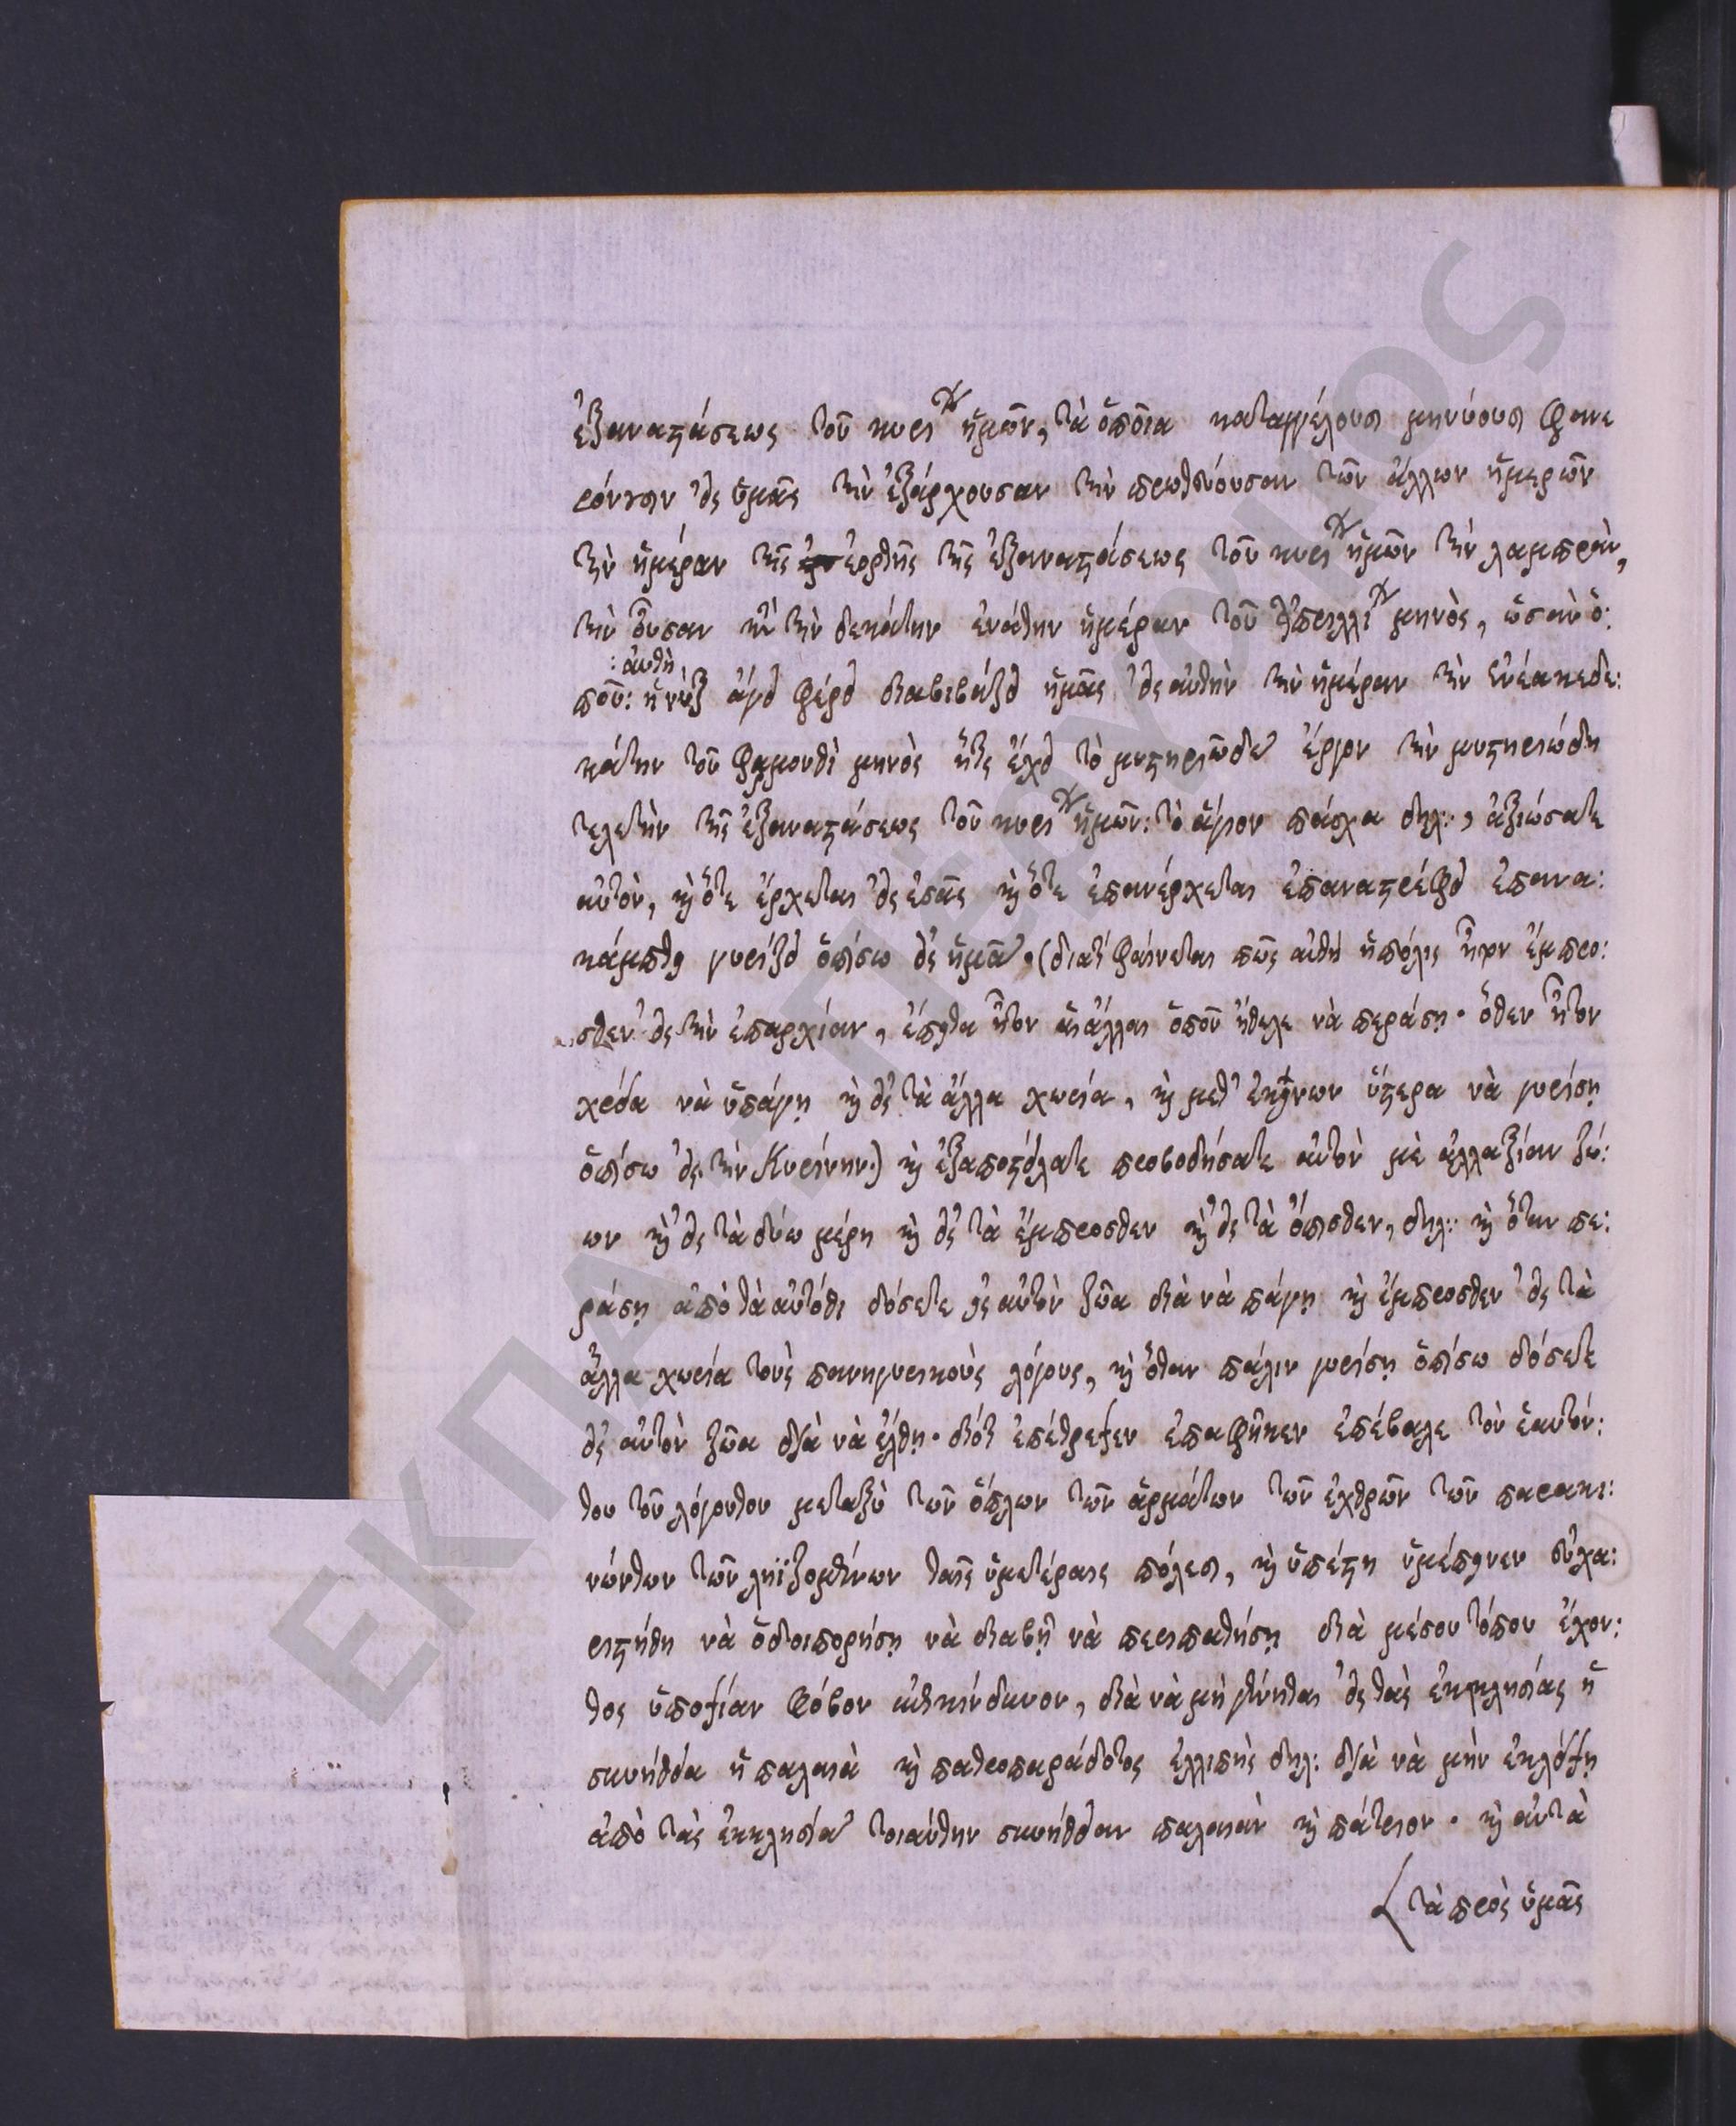 ἐξαναστάσεως τοῦ κυρί ἡμῶν, τὰ ὁποῖα καταγγέλουσι μηνύουσι φανε
ρόνουσιν εἰς ἡμᾶς τὴν ἐξάρχουσαν τὴν πρωτεύουσαν τῶν ἄλλων ἡμερῶν
τὴν ἡμέραν τῆς ἑορτῆς τῆς ἐξαναστάσεως τοῦ κυρί ἡμῶν τὴν λαμπρὰν,
τὴν οὖσαν κατὰ τὴν δεκάτην ἐνάτην ἡμέραν τοῦ Ἀπριλλί μηνὸς, ὡσὰν ὁ:
:αὐτὴ
ποῦ: ἡ νὺξ ἄγει φέρει διαβιβάζει ἡμᾶς εἰς αὐτὴν τὴν ἡμέραν τὴν ἐνέακεδε:
κάτην τοῦ φαρμουθὶ μηνὸς ἥτις ἔχει τὸ μυστηριῶδες ἔργον τὴν μυστηριώδη
τελετὴν τῆς ἐξαναστάσεως τοῦ κυρί ἡμῶν: τὸ ἅγιον πάσχα δηλ:, ἀξιώσατε
αὐτὸν, καὶ ὅτε ἔρχεται εἰς ἐσᾶς καὶ ὅτε ἐπανέρχεται ἐπαναστρέφει ἐπανα:
κάμπτει γυρίζει ὀπίσω εἰς ἡμᾶς, (διατὶ φαίνεται πῶς αὐτὴ ἡ πόλις ἦτον ἔμπρο:
σθεν εἰς τὴν ἐπαρχίαν, ἔπειτα ἦτον αἱ ἄλλαι ὁποῦ ἤθελε νὰ περάσῃ· ὅθεν ἦτον
χρεία νὰ ὑπάγῃ καὶ εἰς τὰ ἄλλα χωρία, καὶ μετ' ἐκείνων ὕστερα νὰ γυρίσῃ
ὀπίσω εἰς τὴν Κυρίνην·) καὶ ἐξαποστείλατε προβοδήσατε αὐτὸν μὲ ἀλλαξίαν ζώ:
ων καὶ εἰς τὰ δύω μέρη καὶ εἰς τὰ ἔμπροσθεν καὶ εἰς τὰ ὄπισθεν, δηλ: καὶ ὅταν πε:
ράσῃ ἀπὸ τὰ αὐτόθι δόσετε εἰς αὐτὸν ζῶα διὰ νὰ πάγῃ καὶ ἔμπροσθεν εἰς τὰ
ἄλλα χωρία τοὺς πανηγυρικοὺς λόγους, καὶ ὅταν πάλιν γυρίσῃ ὀπίσω δόσετε
εἰς αὐτὸν ζῶα διὰ νὰ ἔλθῃ· διότι ἐπέτρεψεν ἐπαφῆκεν ἐπέβαλε τὸν ἑαυτόν:
του τοῦ λόγουτου μεταξὺ τῶν ὅπλων τῶν ἁρμάτων τῶν ἐχθρῶν τῶν παρακι:
νώντων τῶν ληϊζομένων ταῖς ὑμετέραις πόλεσι, καὶ ὑπέστη ὑπέμεινεν εὐχα:
ριστήθη νὰ ὁδοιπορήσῃ νὰ διαβῇ νὰ περιπατήσῃ διὰ μέσου τόπου ἔχον:
τος ὑποψίαν φόβον καὶ κίνδυνον, διὰ νὰ μὴ γένηται εἰς τὰς ἐκκλησίας ἡ
συνήθεια ἡ παλαιὰ καὶ πατροπαράδοτος ἐλλιπὴς δηλ: διὰ νὰ μὴν ἐκλείψῃ
ἀπὸ τὰς ἐκκλησίας τοιαύτην συνήθειαν παλαιὰν καὶ πάτριον· καὶ αὐτὰ
τὰ πρὸς ὑμᾶς
ΕΚΠΑ-ΠΕΡΓΑΜΟΣ